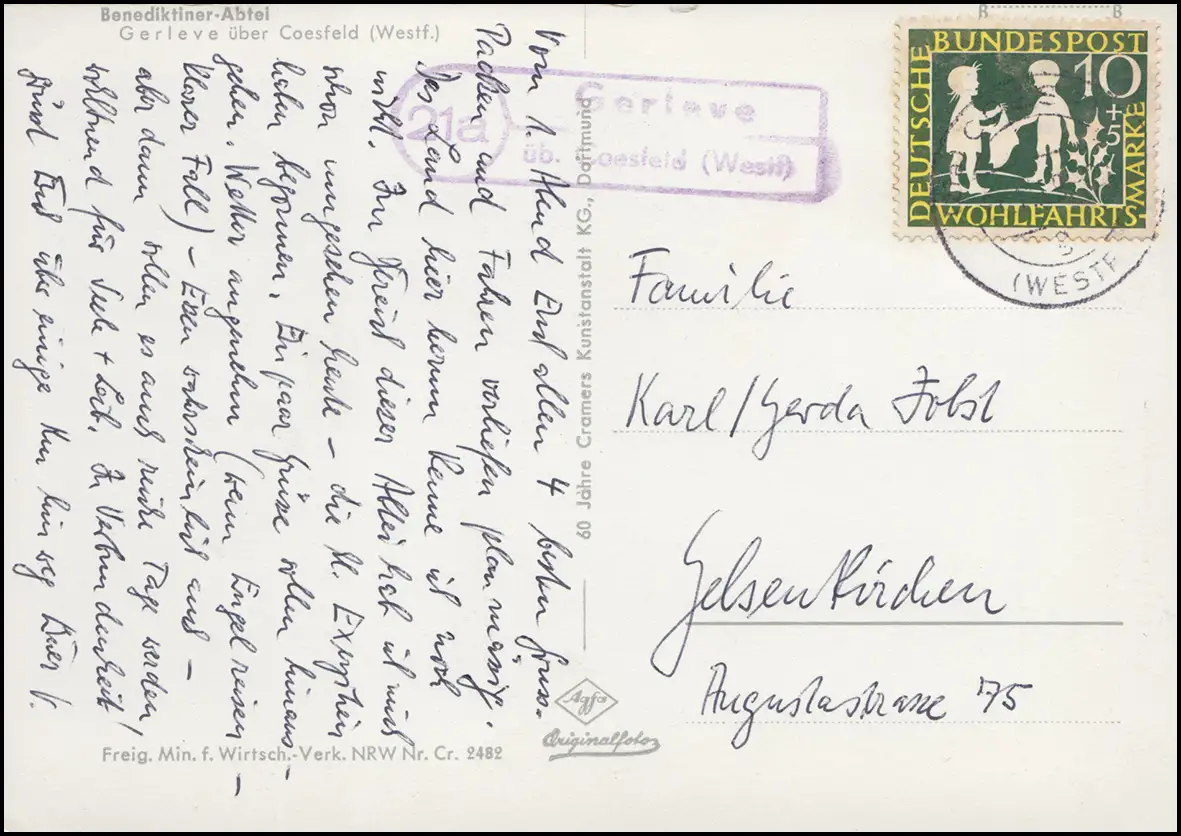 Benediktiner-Abtei
Gerleve über Coesfeld (Westf.)
Vom 1. Abend Euch allen 4 besten Gruss.
Packen und Fahren verliefen planmässig.
Das Land hier herum kenne ich noch
nicht. Im Bereich dieser Abtei hab ich mich
schon umgesehen heute – die hl. Exerzitien
haben begonnen. Ein paar Grüsse sollen hinaus-
gehen. Wetter angenehm (wenn Engel reisen –
klarer Fall) – Eben wahrscheinlich auch –
aber dann sollen es auch reiche Tage werden,
wohltuend für Seele + Leib. In Verbundenheit
grüsst Euch über einige Km hinweg Euer
21a
Gerleve
üb. Coesfeld (Westf)
60 Jahre Cramers Kunstanstalt KG., Dortmund
DEUTSCHE
BUNDESPOST
10
+5
WOHLFAHRTS-
MARKE
(WESTF
Familie
Karl/Gerda Jobst
Gelsenkirchen
Augustastrasse 75
Agfa
Originalfoto
Freig. Min. f. Wirtsch.-Verk. NRW Nr. Cr. 2482